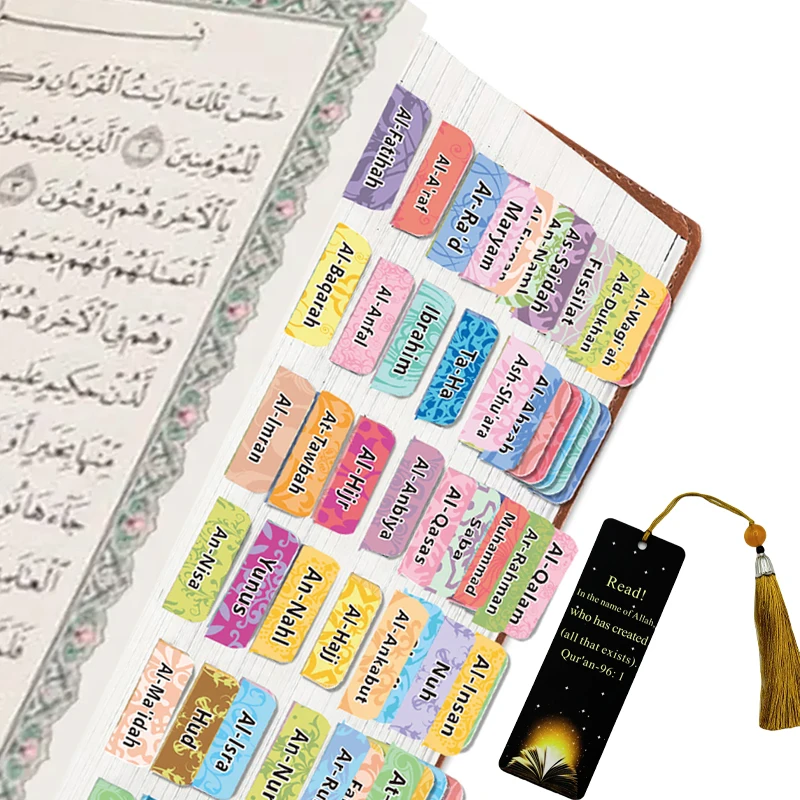 طسٓ تِلْكَ ءَايَٰتُ ٱلْقُرْءَانِ
لِلْمُؤْمِنِينَ ٢ ٱلَّذِينَ يُقِيمُونَ
بِٱلْءَاخِرَةِ هُمْ يُوقِنُونَ ٣
أَعْمَٰلَهُمْ فَهُمْ يَعْمَهُونَ
وَهُمْ فِى ٱلْءَاخِرَةِ هُمُ
لَّدُنْ حَكِيمٍ عَلِيمٍ
مِنْهَا بِخَبَرٍ أَوْ
جَآءَهَا
Al-Fatihah
Al-A'raf
Ar-Ra'd
Maryam
An-Naml
As-Sajdah
Fussilat
Ad-Dukhan
Al-Waqi'ah
Al-Baqarah
Al-Anfal
Ibrahim
Ta-Ha
Ash-Shu'ara
Al-Ahzab
Al-Imran
At-Tawbah
Al-Hijr
Al-Anbiya
Al-Qasas
Saba
Muhammad
Ar-Rahman
Al-Qalam
An-Nisa
Yunus
An-Nahl
Al-Hajj
Al-Ankabut
Nuh
Al-Insan
Al-Ma'idah
Hud
Al-Isra
An-Nur
Read!
In the name of Allah,
who has created
(all that exists).
Qur'an-96: 1